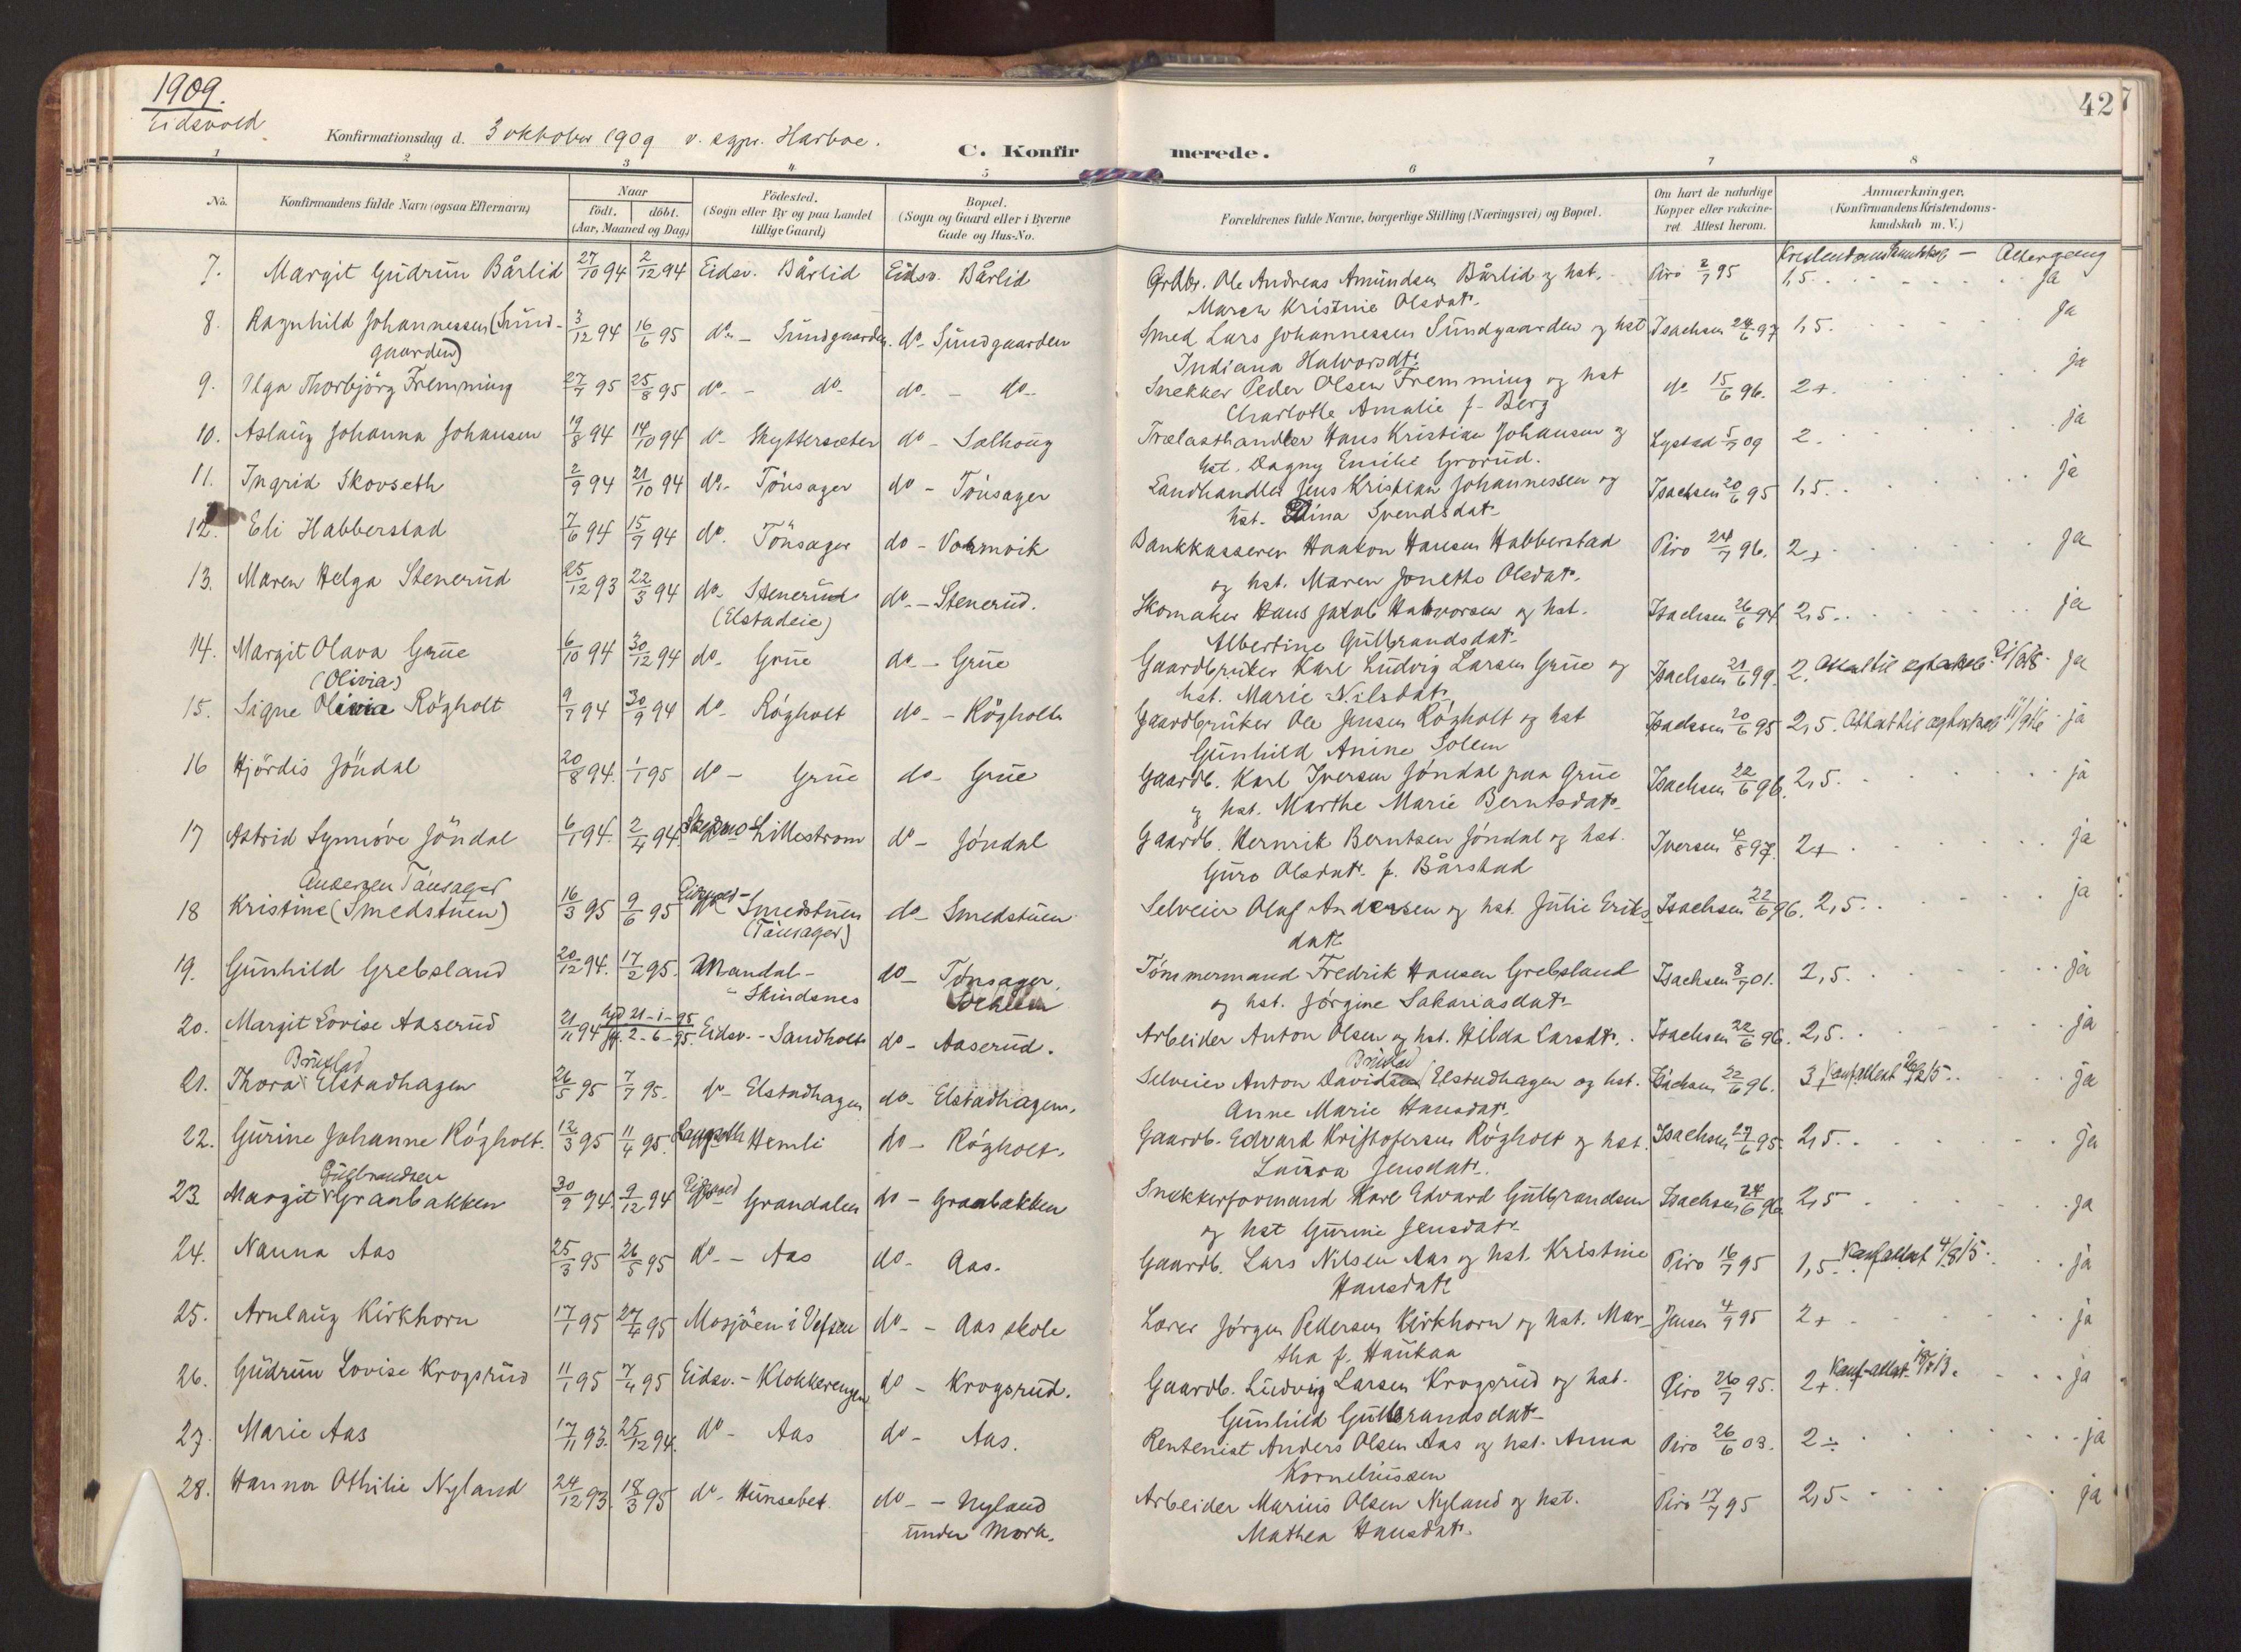 1909.
Eidsvold
427
Konfirmationsdag d. 3 oktober 1909 v. sgpr. Harboe.
C. Konfirmerede.
1 2 3 4 5 6 7 8
No. Konfirmandens fulde Navn (ogsaa Efternavn) Naar födt. döbt. (Aar, Maaned og Dag) Födested. (Sogn eller By og paa Landet tillige Gaard) Bopæl. (Sogn og Gaard eller i Byerne Gade og Hus-No. Forældrenes fulde Navne, borgerlige Stilling (Næringsvei) og Bopæl. Om havt de naturlige Kopper eller vaccineret. Attest herom. Anmærkninger. (Konfirmandens Kristendomskundskab m. V.)
Kristendomskundskab — Altergang
7. Margit Gudrun Bårlid 27/10 94 2/12 94 Eidsv. Bårlid Eidsv. Bårlid Grdbr. Ole Andreas Amundsen Bårlid og hst. Piro 2/7 95 1,5. ja
Maren Kristine Olsdat.
8. Ragnhild Johannessen (Sund- 3/12 94 16/6 95 do - Sundgaarden. do - Sundgaarden Smed Lars Johannessen Sundgaarden og hst Isachsen 24/6 97 1,5. ja
gaarden) Indiana Halvorsdt.
9. Olga Thorbjörg Fremming 27/7 95 25/8 95 do - do - do - do - Snekker Peder Olsen Fremming og hst do 15/6 96. 2+. ja
Charlotte Amalie f. Berg
10. Aslaug Johanna Johansen 19/8 94 14/10 94 do - Skyttersæter do - Solhoug Trælasthandler Hans Kristian Johansen og Lystad 5/7 09 2. ja
hst. Dagny Emilie Grorud.
11. Ingrid Skovseth 2/9 94 21/10 94 do - Tönsager do - Tönsager Landhandler Jens Kristian Johannessen og Isachsen 20/6 95 1,5. ja
hst. Dina Svendsdat.
12. Eli Habberstad 7/6 94 15/9 94 do. Tönsager do - Vormvik Bankkasserer Haakon Hansen Habberstad Piro 24/7 96. 2+ ja
og hst. Maren Jonette Olsdat.
13. Maren Helga Stenerud 25/12 93 22/3 94 do - Stenerud do - Stenerud. Skomaker Hans Jakob Halvorsen og hst. Isachsen 26/6 94 2,5. ja
(Elstadeie) Albertine Gulbrandsdat.
14. Margit Olava Grue 6/10 94 30/12 94 do - Grue do - Grue Gaardbruker Karl Ludvig Larsen Grue og Isachsen 21/6 99. 2. Attest til egteskab ja
(Olivia) hst. Marie Nilsdat.
15. Signe Olivia Rögholt 9/7 94 30/9 94 do - Rögholt do - Rögholt Gaardbruker Ole Jensen Rögholt og hst Isachsen 20/6 95 2,5. Attest til egteskab 11/9 16 ja
Gunhild Anine Solem
16 Hjördis Jöndal 20/8 94. 1/1 95 do - Grue do - Grue Gaardb. Karl Iversen Jöndal paa Grue Isachsen 22/6 96. 2,5. ja
og hst. Marthe Marie Berntsdat.
17 Astrid Synnöve Jöndal 6/1 94. 2/4 94 Skedsmo Lillestrom do - Jöndal Gaardb. Henrik Berntsen Jöndal og hst. Iversen 4/8 97. 2+ ja
Guro Olsdat. f. Bårstad
Andersen Tönsager
18 Kristine (Smedstuen) 16/3 95 9/6 95 Eidsvold - Smedstuen do - Smedstuen Selveier Olaf Andersen og hst. Julie Eriks- Isachsen 22/6 96. 2,5. ja
(Tönsager) dat.
19. Gunhild Grebsland 20/12 94. 17/2 95. Mandal - do - Tönsager. Tömmermand Fredrik Hansen Grebsland Isachsen 8/7 01. 2,5. ja
- Skindsnes og hst. Jörgine Sakariasdat.
20. Margit Lovise Aaserud 21/11 94 21-1-95 2-6-95. Eidsv. - Sandholt do - Aaserud. Arbeider Anton Olsen og hst. Hilda Larsdt. Isachsen 22/6 96. 2,5. ja
Brustad Brustad
21. Thora Elstadhagen 26/5 95 7/7 95. do - Elstadhagen do - Elstadhagen. Selveier Anton Davidsen Elstadhagen og hst. Isachsen 22/6 96. 3+ Konf.attest ja
Anne Marie Hansdat.
22. Gurine Johanne Rögholt. 12/3 95 11/4 95. Hemli do - Rögholt. Gaardb. Edvard Kristofersen Rögholt og hst. Isachsen 27/6 95. 2,5. ja
Laura Jensdat.
Gulbrandsen
23. Margit Granbakken 30/9 94. 9/12 94 Eidsvold Grandalen do - Granbakken Snekkerformand Karl Edvard Gulbrandsen Isachsen 24/6 96. 2,5 ja
og hst Gurine Jensdat.
24. Nanna Aas 25/3 95 26/5 95 do - Aas do - Aas. Gaardb. Lars Nilsen Aas og hst. Kristine Piro 16/7 95 1,5. Konf.attest 4/8 15. ja
Hansdat.
25. Arnlaug Kirkhorn 17/1 95 27/4 95 Mosjöen i Vefsen do - Aas skole Lærer Jörgen Pedersen Kirkhorn og hst. Mar- Jensen 4/9 95 2+ ja
tha f. Haukaa
26. Gudrun Lovise Krogsrud 11/1 95 7/4 95 Eidsv. - Klokkerengen do - Krogsrud. Gaardb. Ludvig Larsen Krogsrud og hst. Piro 26/7 95. 2+ Konf-attest ja
Gunhild Gulbrandsdat.
27. Marie Aas 17/11 93. 25/12 94. do - Aas do - Aas. Rentenist Anders Olsen Aas og hst. Anna Piro 26/6 03. 2÷ ja
Korneliussen
28. Hanna Othilie Nyland 24/12 93. 18/3 95 do - Hunsebet do - Nyland Arbeider Marius Olsen Nyland og hst. Piro 17/7 95 2,5. ja
under Mork. Mathea Hansdat.